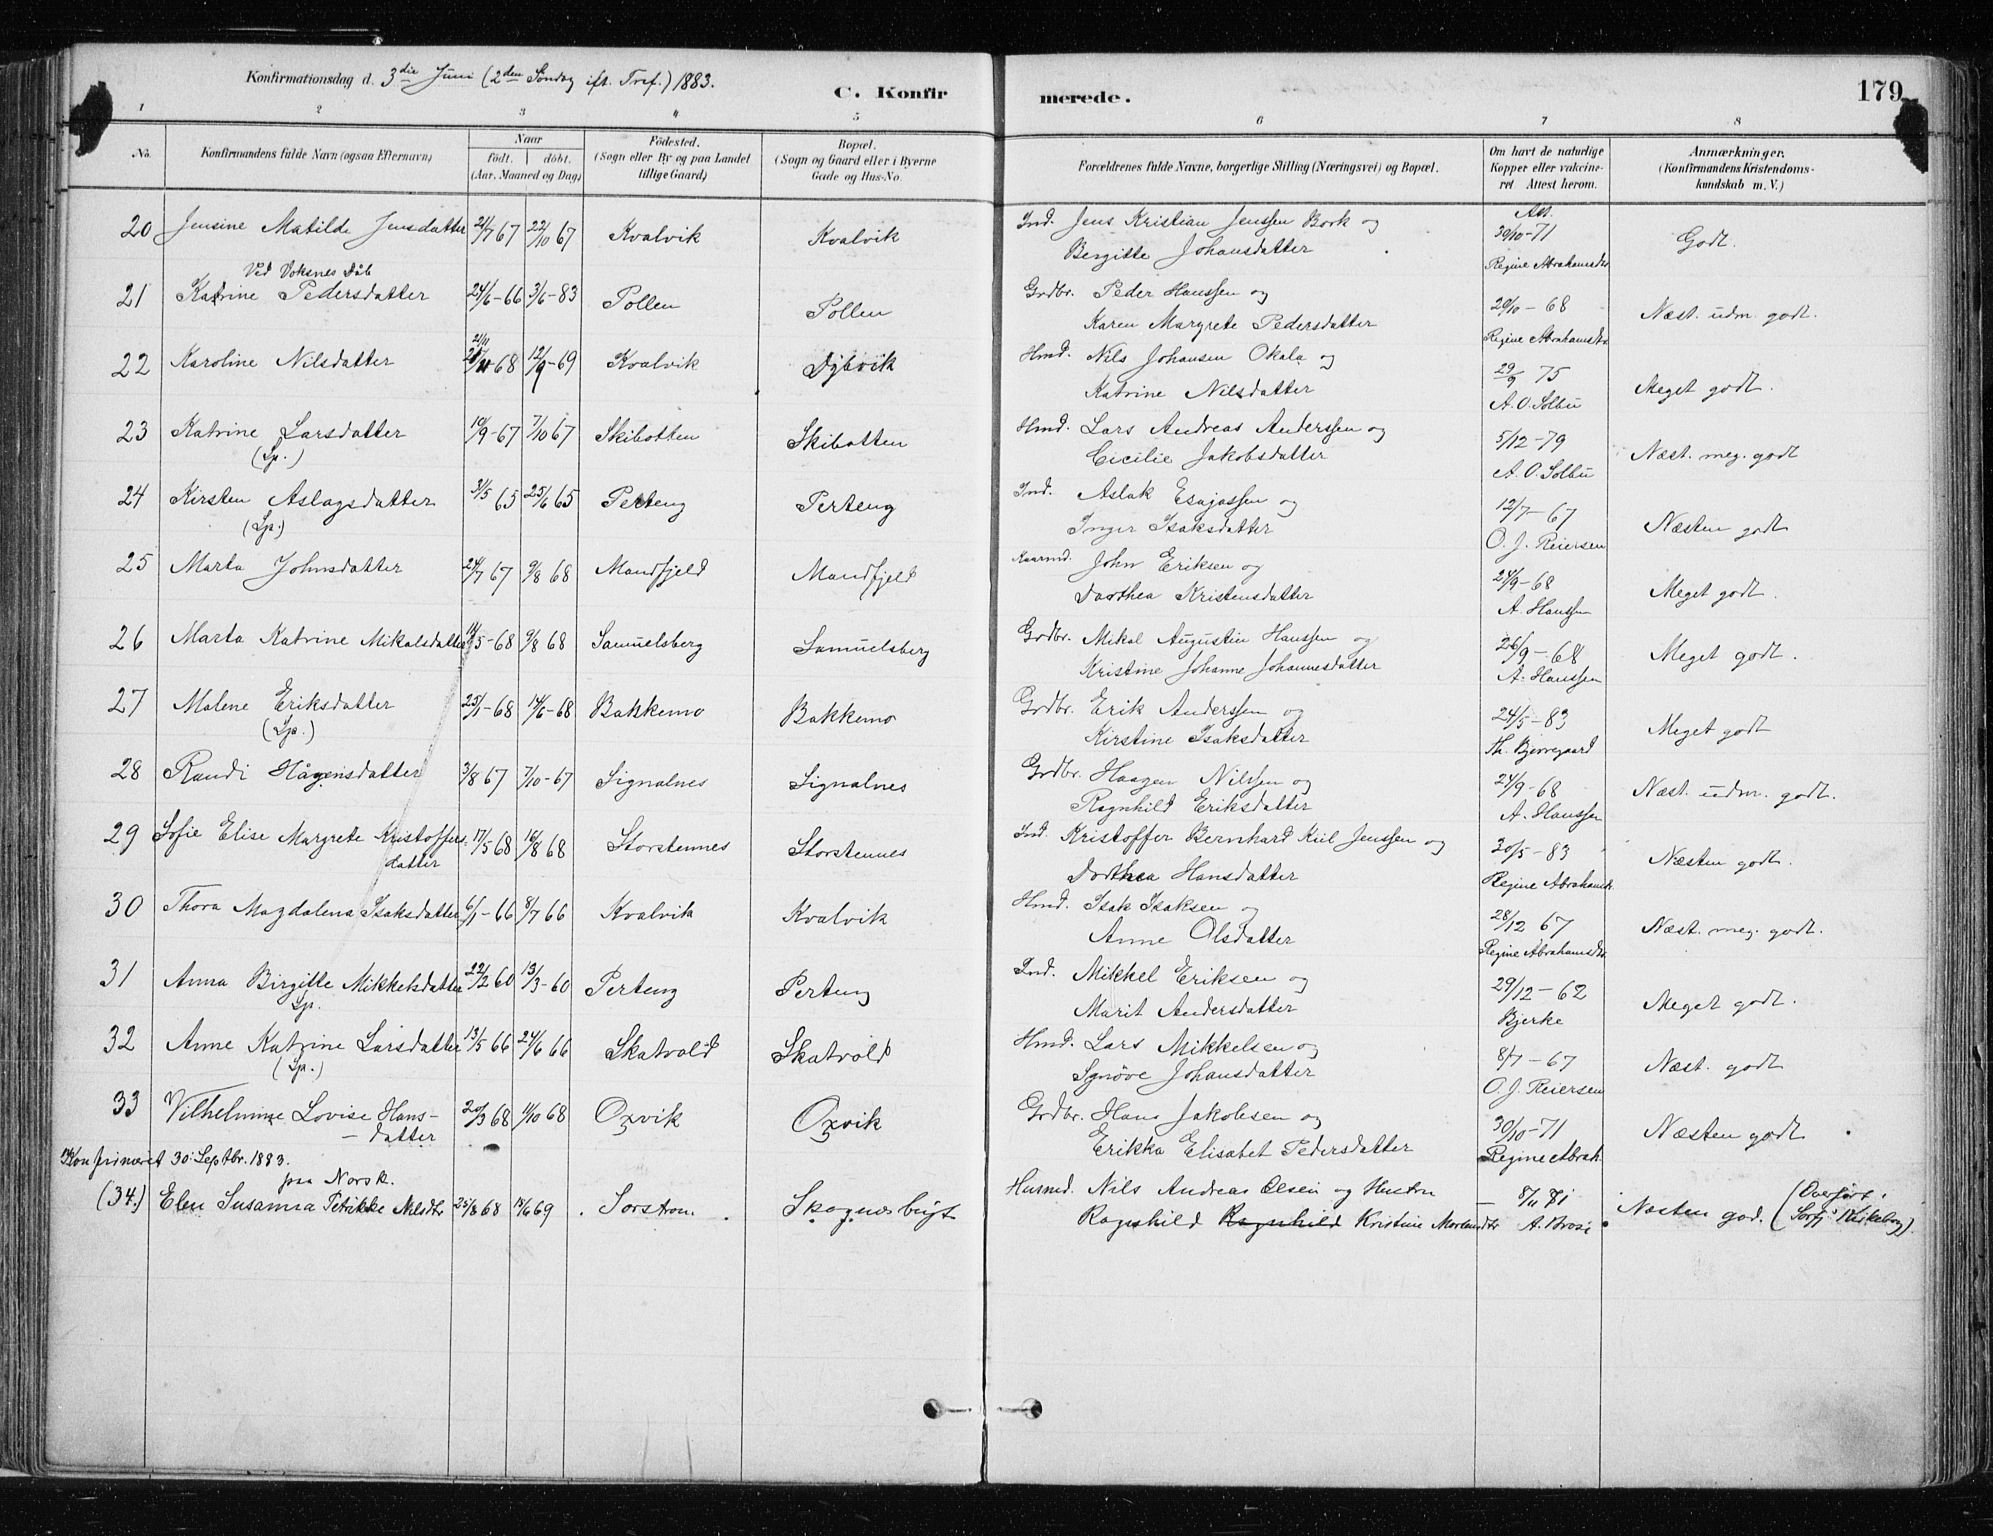 Konfirmationsdag d. 3die Juni (2den Söndag eft. Tref.) 1883.
C. Konfirmerede.
179
1 2 3 4 5 6 7 8
No. Konfirmandens fulde Navn (ogsaa Efternavn) Naar födt. döbt. (Aar, Maaned og Dag) Födested. (Sogn eller By og paa Landet tillige Gaard) Bopæl. (Sogn og Gaard eller i Byerne Gade og Hus-No. Forældrenes fulde Navne, borgerlige Stilling (Næringsvei) og Bopæl. Om havt de naturlige Kopper eller vakcineret Attest herom. Anmærkninger. (Konfirmandens Kristendomskundskab m. V.)
20 Jensine Matilde Jensdatter 21/7 67 22/10 67 Kvalvik Kvalvik Ind. Jens Kristian Jenssen Bork og Att. 30/10-71 Godt.
Bergitte Johansdatter Regine Abrahamsdtr
Ved Voksnes Dåb
21 Katrine Pedersdatter 24/6-66 3/6-83 Pollen Pollen Grdbr. Peder Hanssen og 29/10-68 Næst. udm. godt.
Karen Margrete Pedersdatter Regine Abrahamsdtr
21/11
22 Karoline Nilsdatter 21/11-68 12/9-69 Kvalvik Dybvik Hmd. Nils Johansen Okala og 29/9 75 Meget godt.
Katrine Nilsdatter A. O. Solbu
23 Katrine Larsdatter 10/9-67 7/10 67 Skibotten Skibotten Hmd. Lars Andreas Anderssen og 5/12-79 Næst. meg. godt
(Lp.) Cicilie Jakobsdatter A. O. Solbu
24 Kirsten Aslagsdatter 3/5 65 25/6 65 Perteng Perteng Ind. Aslak Esajassen og 12/7-67 Næsten godt
(Lp.) Inger Isaksdatter O. J. Reiersen
25 Marta Johnsdatter 24/7 67 9/8 68 Mandfjeld Mandfjeld Kaarmd. John Eriksen og 24/9-68 Meget godt.
Dorthea Kristensdatter A. Hanssen
26 Marta Katrine Mikalsdatter 14/5-68 9/8 68 Samuelsberg Samuelsberg Grdbr. Mikal Augustin Hanssen og 26/9-68 Meget godt.
Kristine Johanne Johannesdatter A. Hanssen
27 Malene Eriksdatter 25/1-68 14/6-68 Bakkemo Bakkemo Grdbr. Erik Anderssen og 24/5-83 Meget godt
(Lp.) Kirstine Isaksdatter Th. Bjerregaard
28 Randi Hågensdatter 3/8 67 7/10-67 Signalnes Signalnes Grdbr. Haagen Nilssen og 24/9-68 Næst. udm. godt.
Ragnhild Eriksdatter A. Hanssen
29 Sofie Elise Margrete Kristoffers- 17/5-68 16/8 68 Storstennes Storstennes Ind. Kristoffer Bernhard Kiil Jenssen og 30/5-83 Næsten godt.
datter Dorthea Hansdatter Regine Abrahamsdtr.
30 Thora Magdalena Isaksdatter 6/1-66 8/7 66 Kvalvik Kvalvik Hmd. Isak Isaksen og 28/12 67 Næst. meg. godt.
Anne Olsdatter Regine Abrahamsdtr.
31 Anna Birgitte Mikkelsdatter 22/2 60 13/3-60 Perteng Perteng Ind. Mikkel Eriksen og 29/12-62 Meget godt.
Lp. Marit Andersdatter Bjerke
32 Anne Katrine Larsdatter 13/5 66 24/6 66 Skatvold Skatvold Hmd. Lars Mikkelsen og 8/7-67 Næst. godt
(Lp.) Synöve Johansdatter O. J. Reiersen
33 Vilhelmine Lovise Hans- 20/3 68 11/10 68 Oxvik Oxvik Grdbr. Hans Jakobsen og 30/10-71 Næsten godt
datter Erikka Elisabet Pedersdatter Regine Abrah.
Konfirmeret 30. Septbr. 1883.
paa Norsk.
(34.) Elen Susanna Petrikke Nilsdtr 25/8 68 15/6 69 Sorstrom. Skognesbugt Husmd. Nils Andreas Olsen og Hustru 8/11 81 Næsten god. (Overfört i Sorfj. Kirkebog).
Ragnhild Ragnhild Kristine Mortensdtr A. Brose